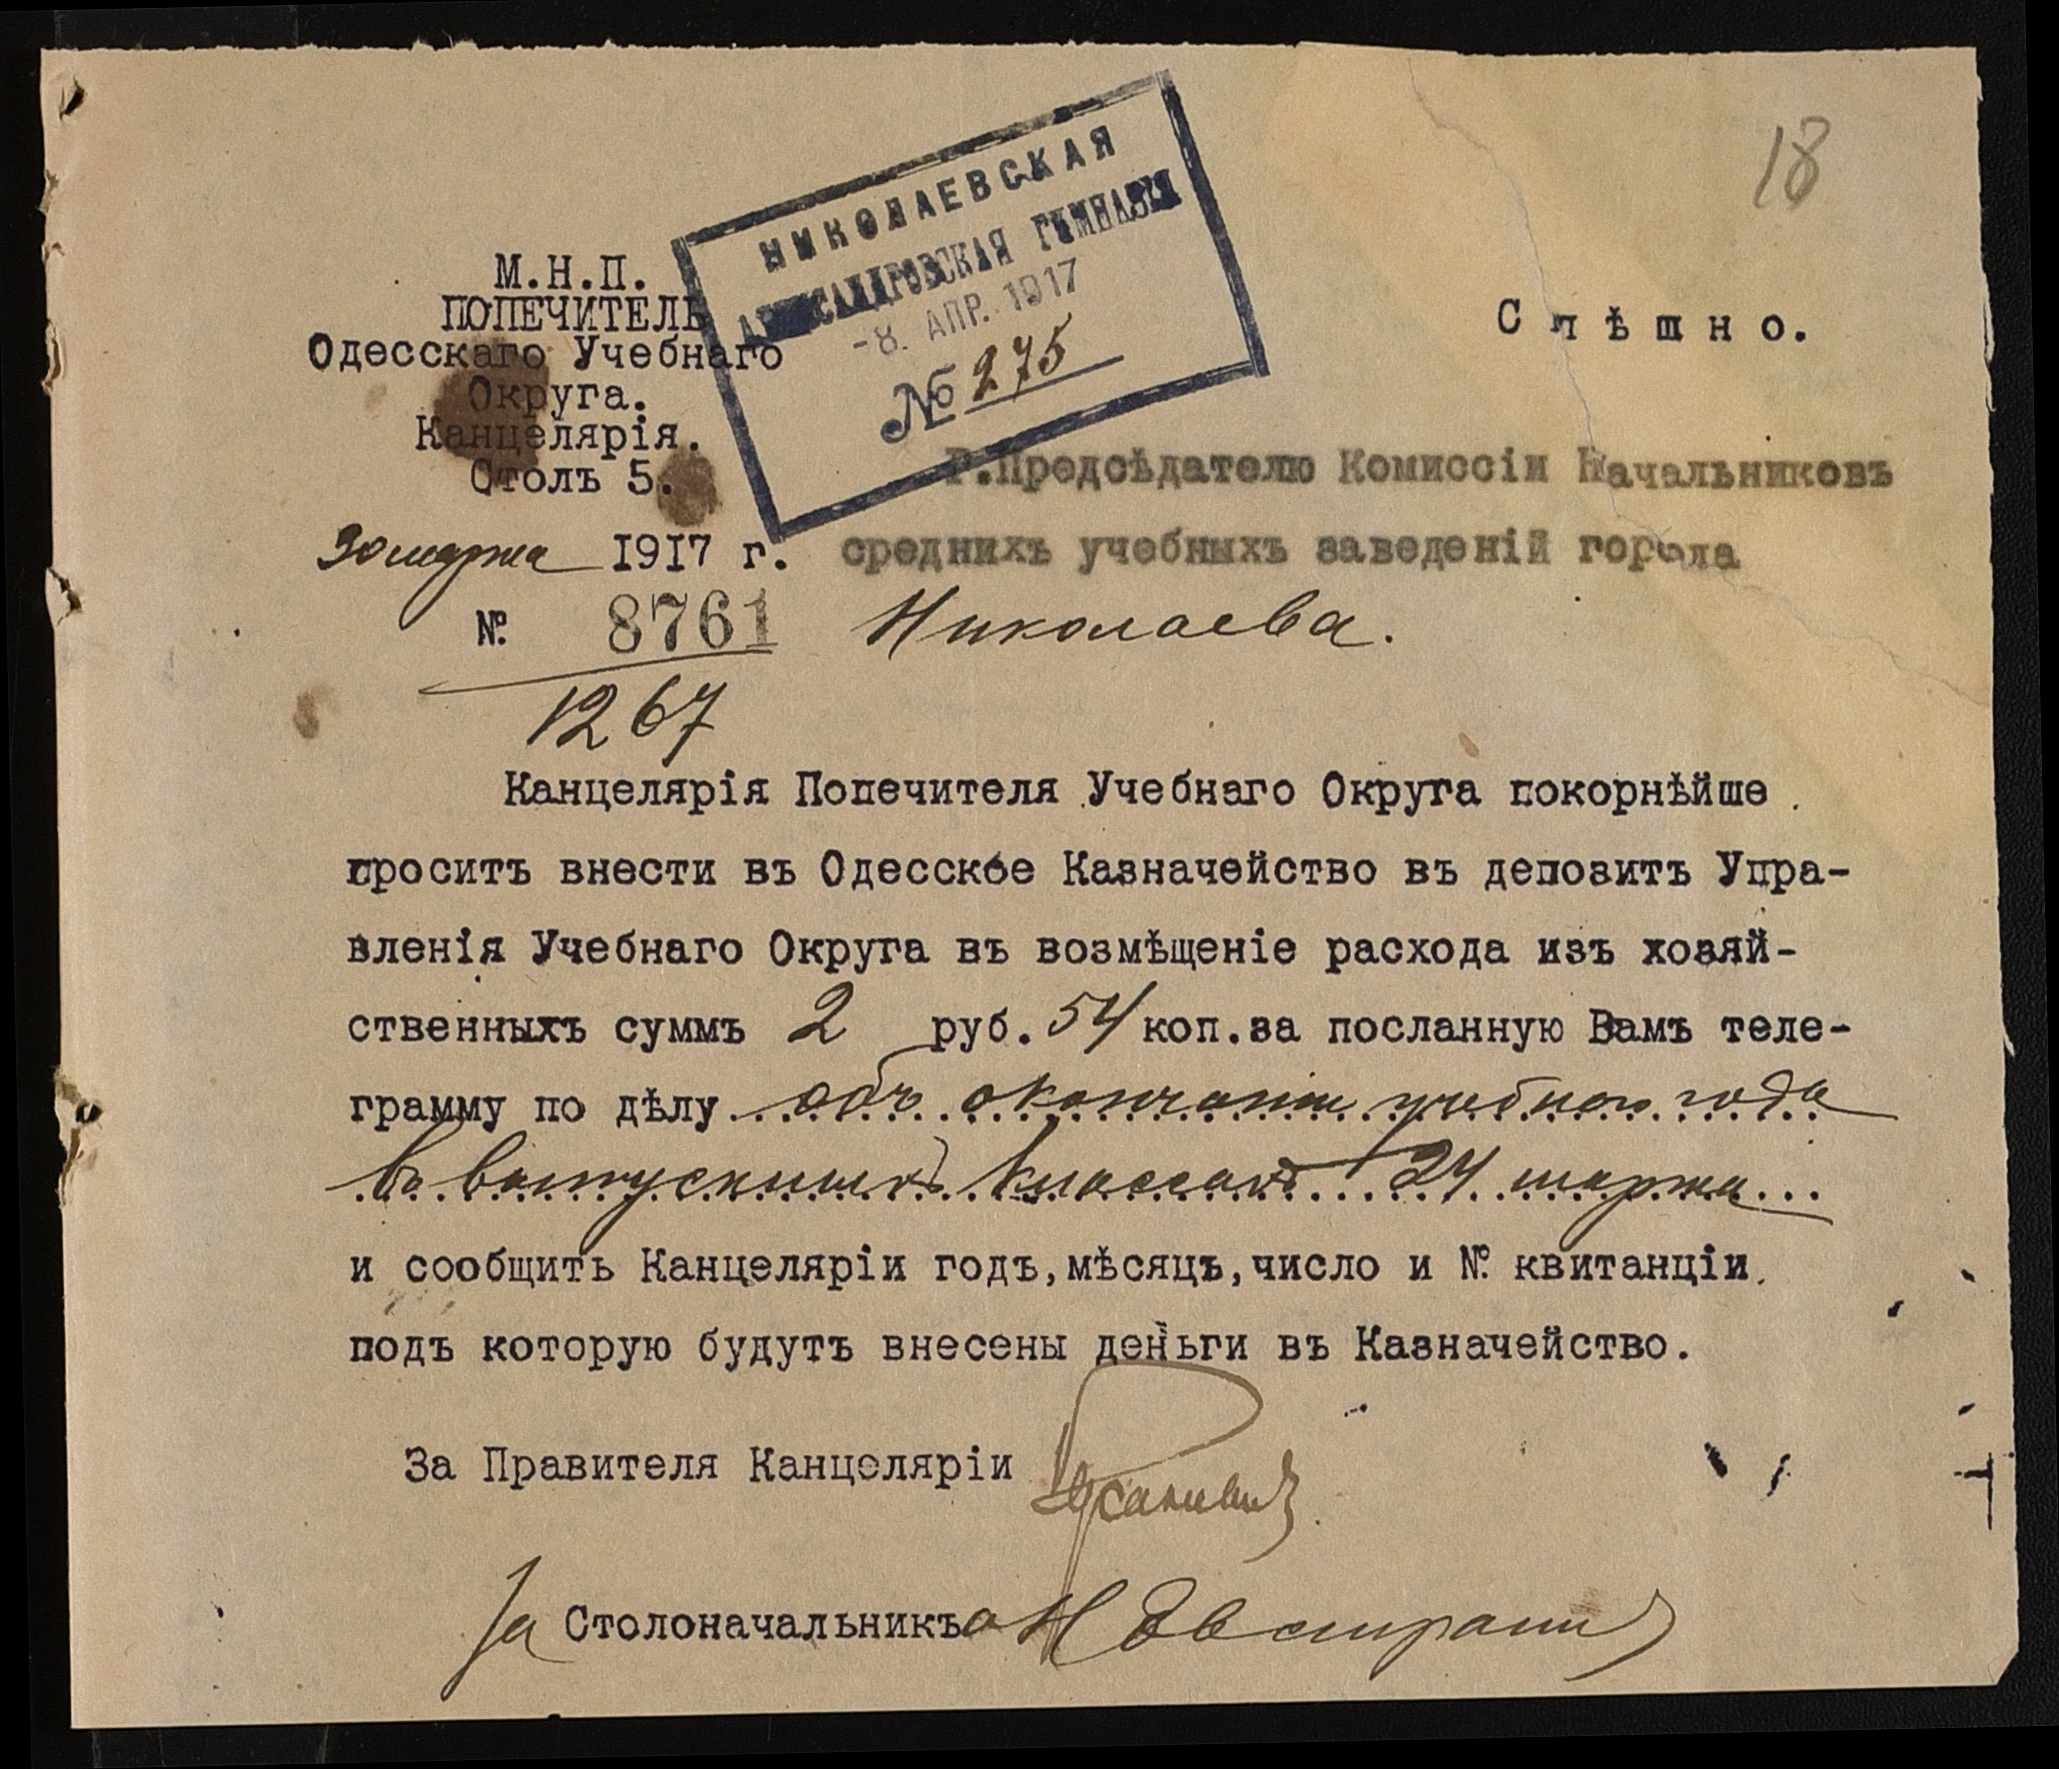 18
НИКОЛАЕВСКАЯ
АЛЕКСАНДРОВСКАЯ ГИМНАЗІЯ
-8. АПР. 1917
№ 275
М.Н.П.
ПОПЕЧИТЕЛЬ
Одесскаго Учебнаго
Округа.
Канцелярія.
Столъ 5.
30 марта 1917 г.
№ 8761
1267
Спѣшно.
Г.Предсѣдателю Комиссіи Начальниковъ
среднихъ учебныхъ заведеній города
Николаева.
Канцелярія Попечителя Учебнаго Округа покорнѣйше
проситъ внести въ Одесское Казначейство въ депозитъ Упра-
вленія Учебнаго Округа въ возмѣщеніе расхода изъ хозяй-
ственныхъ суммъ 2 руб. 54 коп.за посланную Вамъ теле-
грамму по дѣлу объ окончаніи учебнаго года
въ выпускныхъ классахъ 24 марта...
и сообщить Канцеляріи годъ,мѣсяцъ,число и № квитанціи
подъ которую будутъ внесены деньги въ Казначейство.
За Правителя Канцеляріи
За Столоначальника